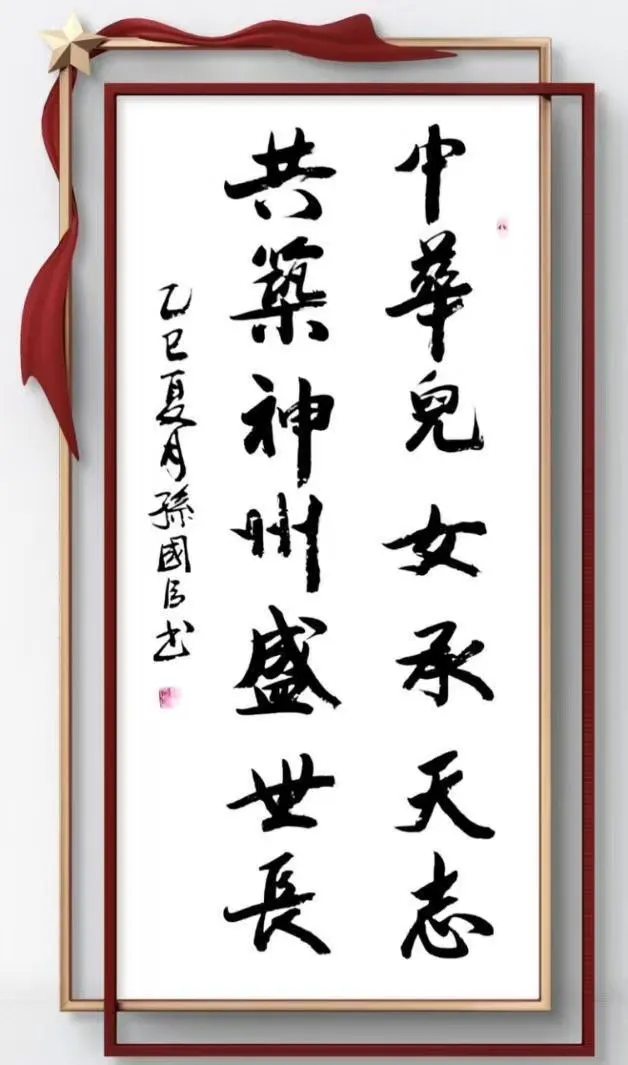 中華兒女承天志
共築神州盛世長
乙巳夏月孫國良书